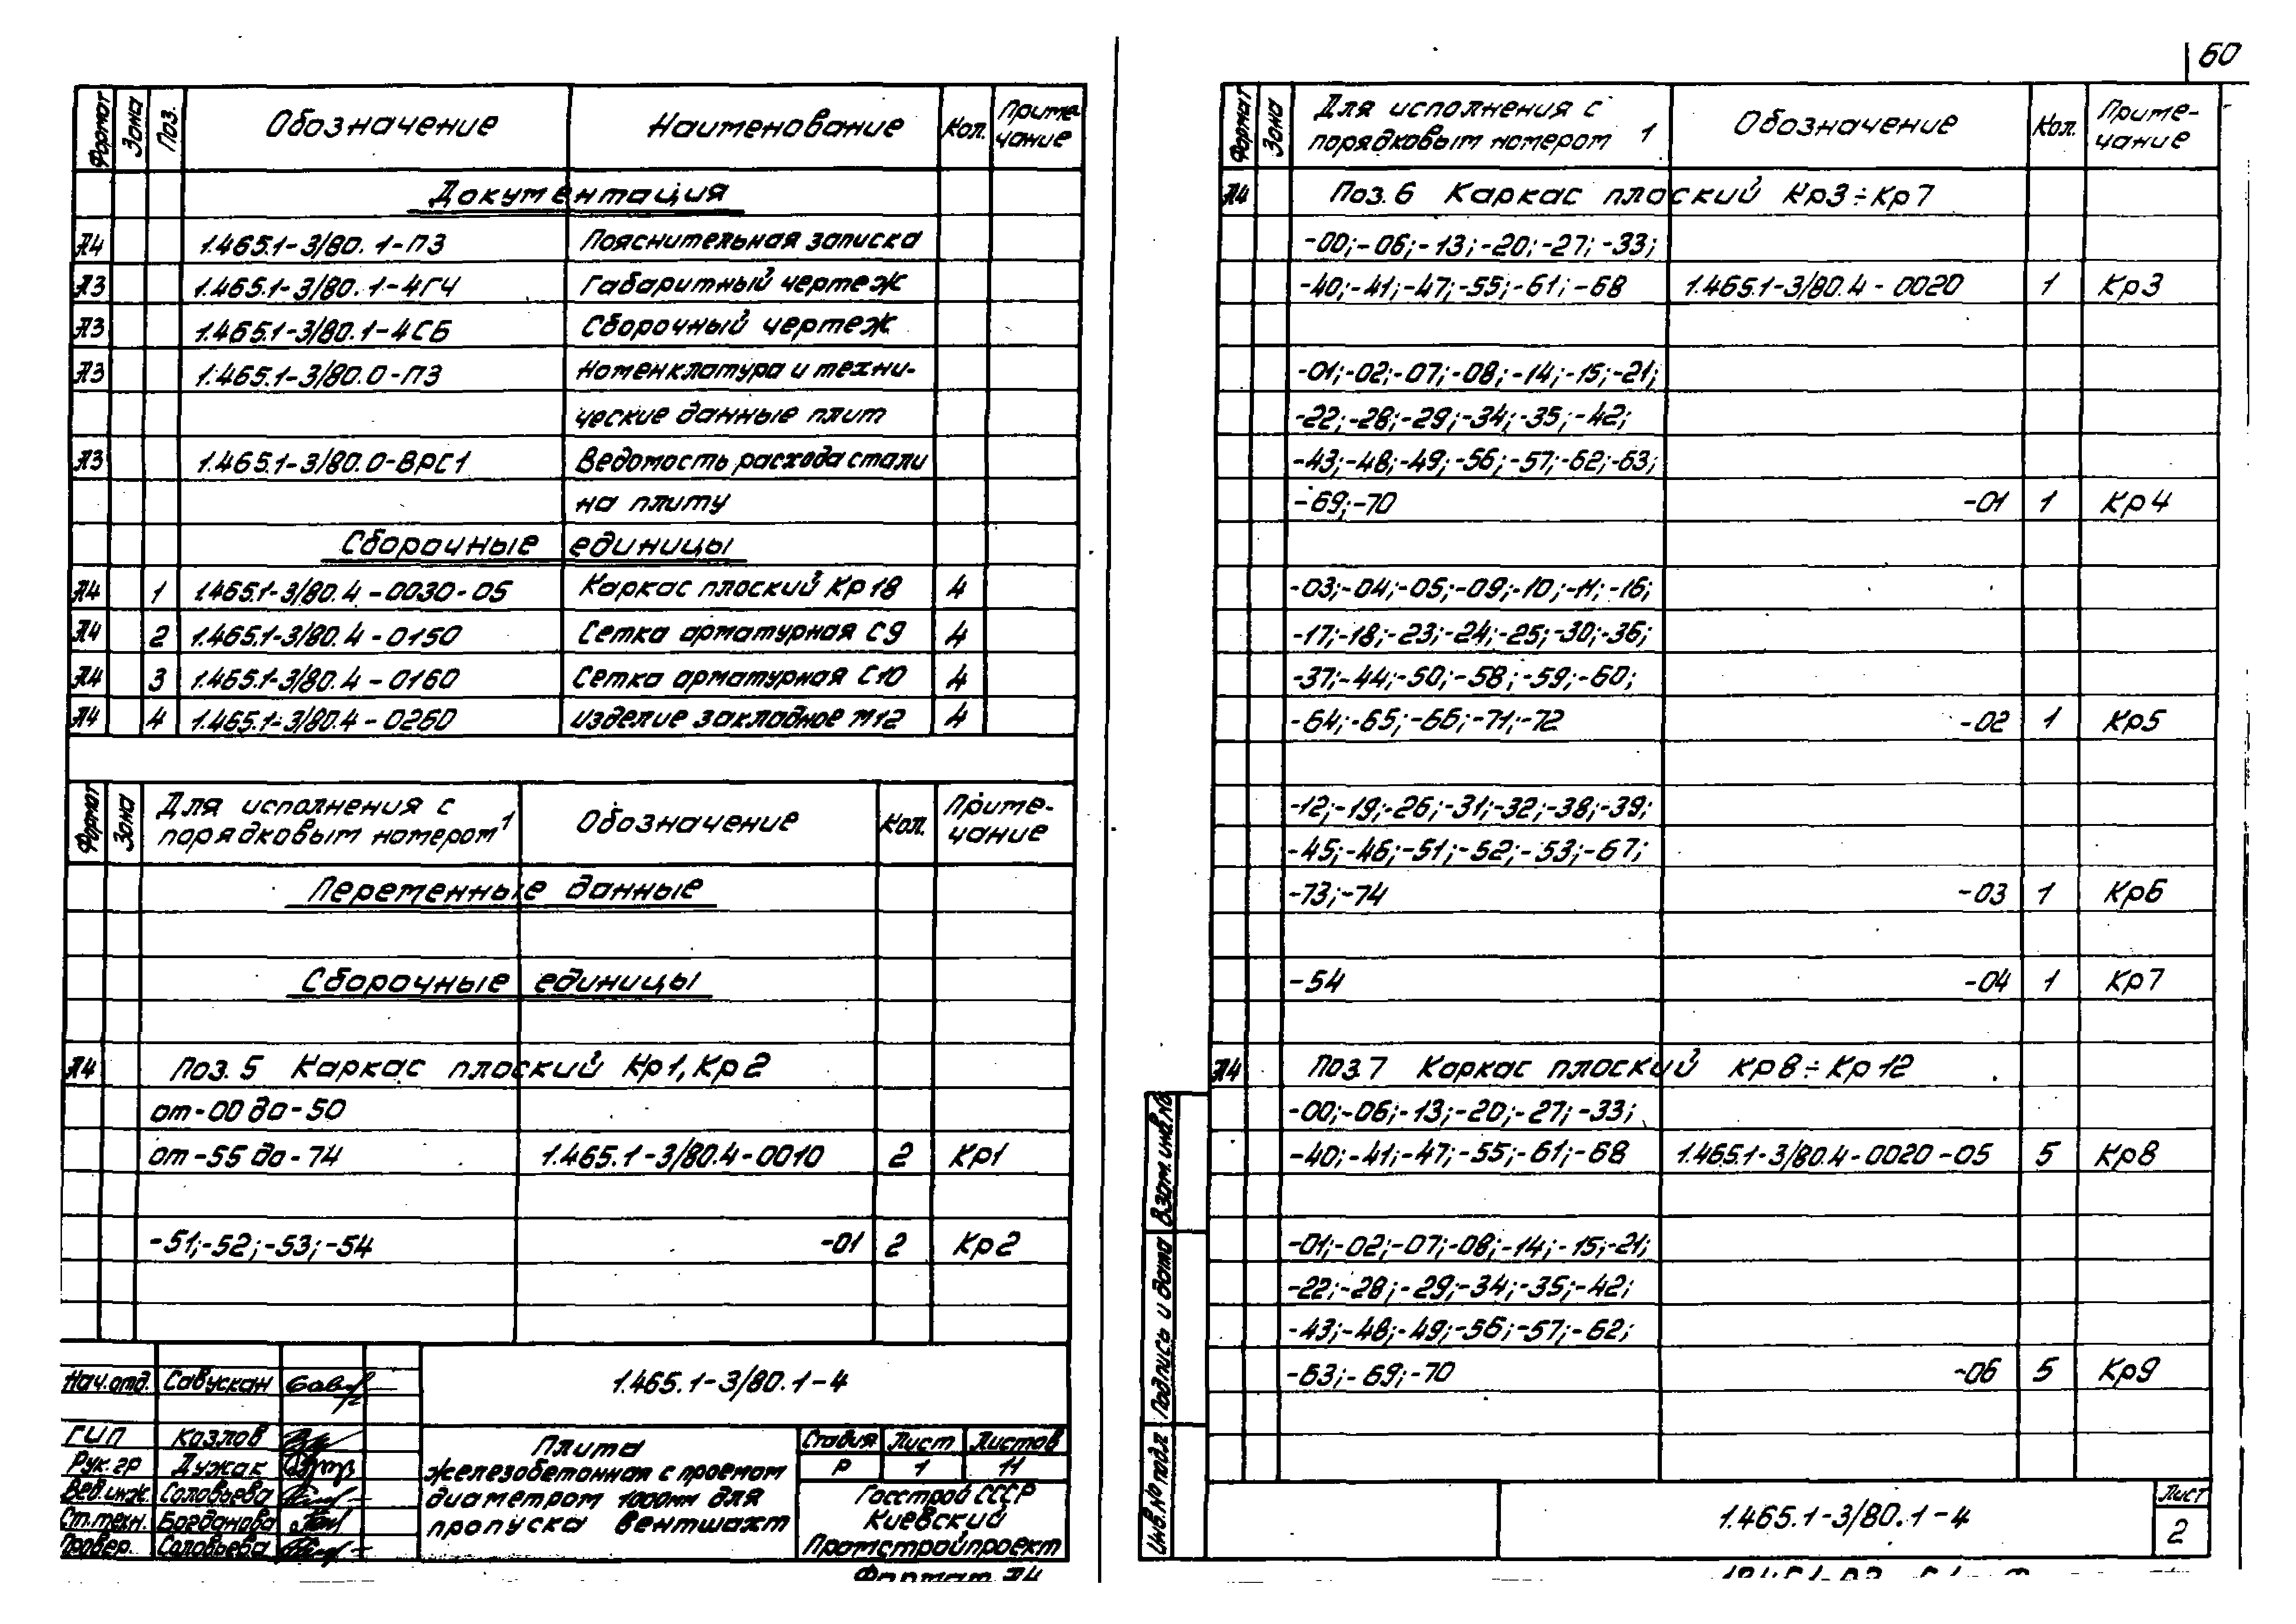 60
Формат Зона Поз. Обозначение Наименование Кол. Приме-
чание
Документация
А4 1.465.1-3/80.1-ПЗ Пояснительная записка
А3 1.465.1-3/80.1-4ГЧ Габаритный чертеж
А3 1.465.1-3/80.1-4СБ Сборочный чертеж
А3 1.465.1-3/80.0-ПЗ Номенклатура и техни-
ческие данные плит
А3 1.465.1-3/80.0-ВРС1 Ведомость расхода стали
на плиту
Сборочные единицы
А4 1 1.465.1-3/80.4-0030-05 Каркас плоский Кр18 4
А4 2 1.465.1-3/80.4-0150 Сетка арматурная С9 4
А4 3 1.465.1-3/80.4-0160 Сетка арматурная С10 4
А4 4 1.465.1-3/80.4-0260 Изделие закладное М12 4
Формат Зона Для исполнения с
порядковым номером 1 Обозначение Кол. Приме-
чание
Переменные данные
Сборочные единицы
А4 Поз. 5 Каркас плоский Кр1, Кр2
от-00 до-50
от-55 до-74 1.465.1-3/80.4-0010 2 Кр1
-51;-52;-53;-54 -01 2 Кр2
1.465.1-3/80.1-4
Нач.отд. Савускан
ГИП Козлов
Рук.гр Дужак
Вед.инж. Соловьева
Ст.техн. Богданова
Провер. Соловьева
Плита
железобетонная с проемом
диаметром 1000мм для
пропуска вентшахт
Стадия Лист Листов
Р 1 11
Госстрой СССР
Киевский
Промстройпроект
Формат А4
Формат Зона Для исполнения с
порядковым номером 1 Обозначение Кол. Приме-
чание
А4 Поз.6 Каркас плоский Кр3÷Кр7
-00;-06;-13;-20;-27;-33;
-40;-41;-47;-55;-61;-68 1.465.1-3/80.4-0020 1 Кр3
-01;-02;-07;-08;-14;-15;-21;
-22;-28;-29;-34;-35;-42;
-43;-48;-49;-56;-57;-62;-63;
-69;-70 -01 1 Кр4
-03;-04;-05;-09;-10;-11;-16;
-17;-18;-23;-24;-25;-30;-36;
-37;-44;-50;-58;-59;-60;
-64;-65;-66;-71;-72 -02 1 Кр5
-12;-19;-26;-31;-32;-38;-39;
-45;-46;-51;-52;-53;-67;
-73;-74 -03 1 Кр6
-54 -04 1 Кр7
А4 Поз.7 Каркас плоский Кр8÷Кр12
-00;-06;-13;-20;-27;-33;
-40;-41;-47;-55;-61;-68 1.465.1-3/80.4-0020-05 5 Кр8
-01;-02;-07;-08;-14;-15;-21;
-22;-28;-29;-34;-35;-42;
-43;-48;-49;-56;-57;-62;
-63;-69;-70 -06 5 Кр9
Взам.инв.№
Подпись и дата
Инв.№ подл
1.465.1-3/80.1-4
Лист
2